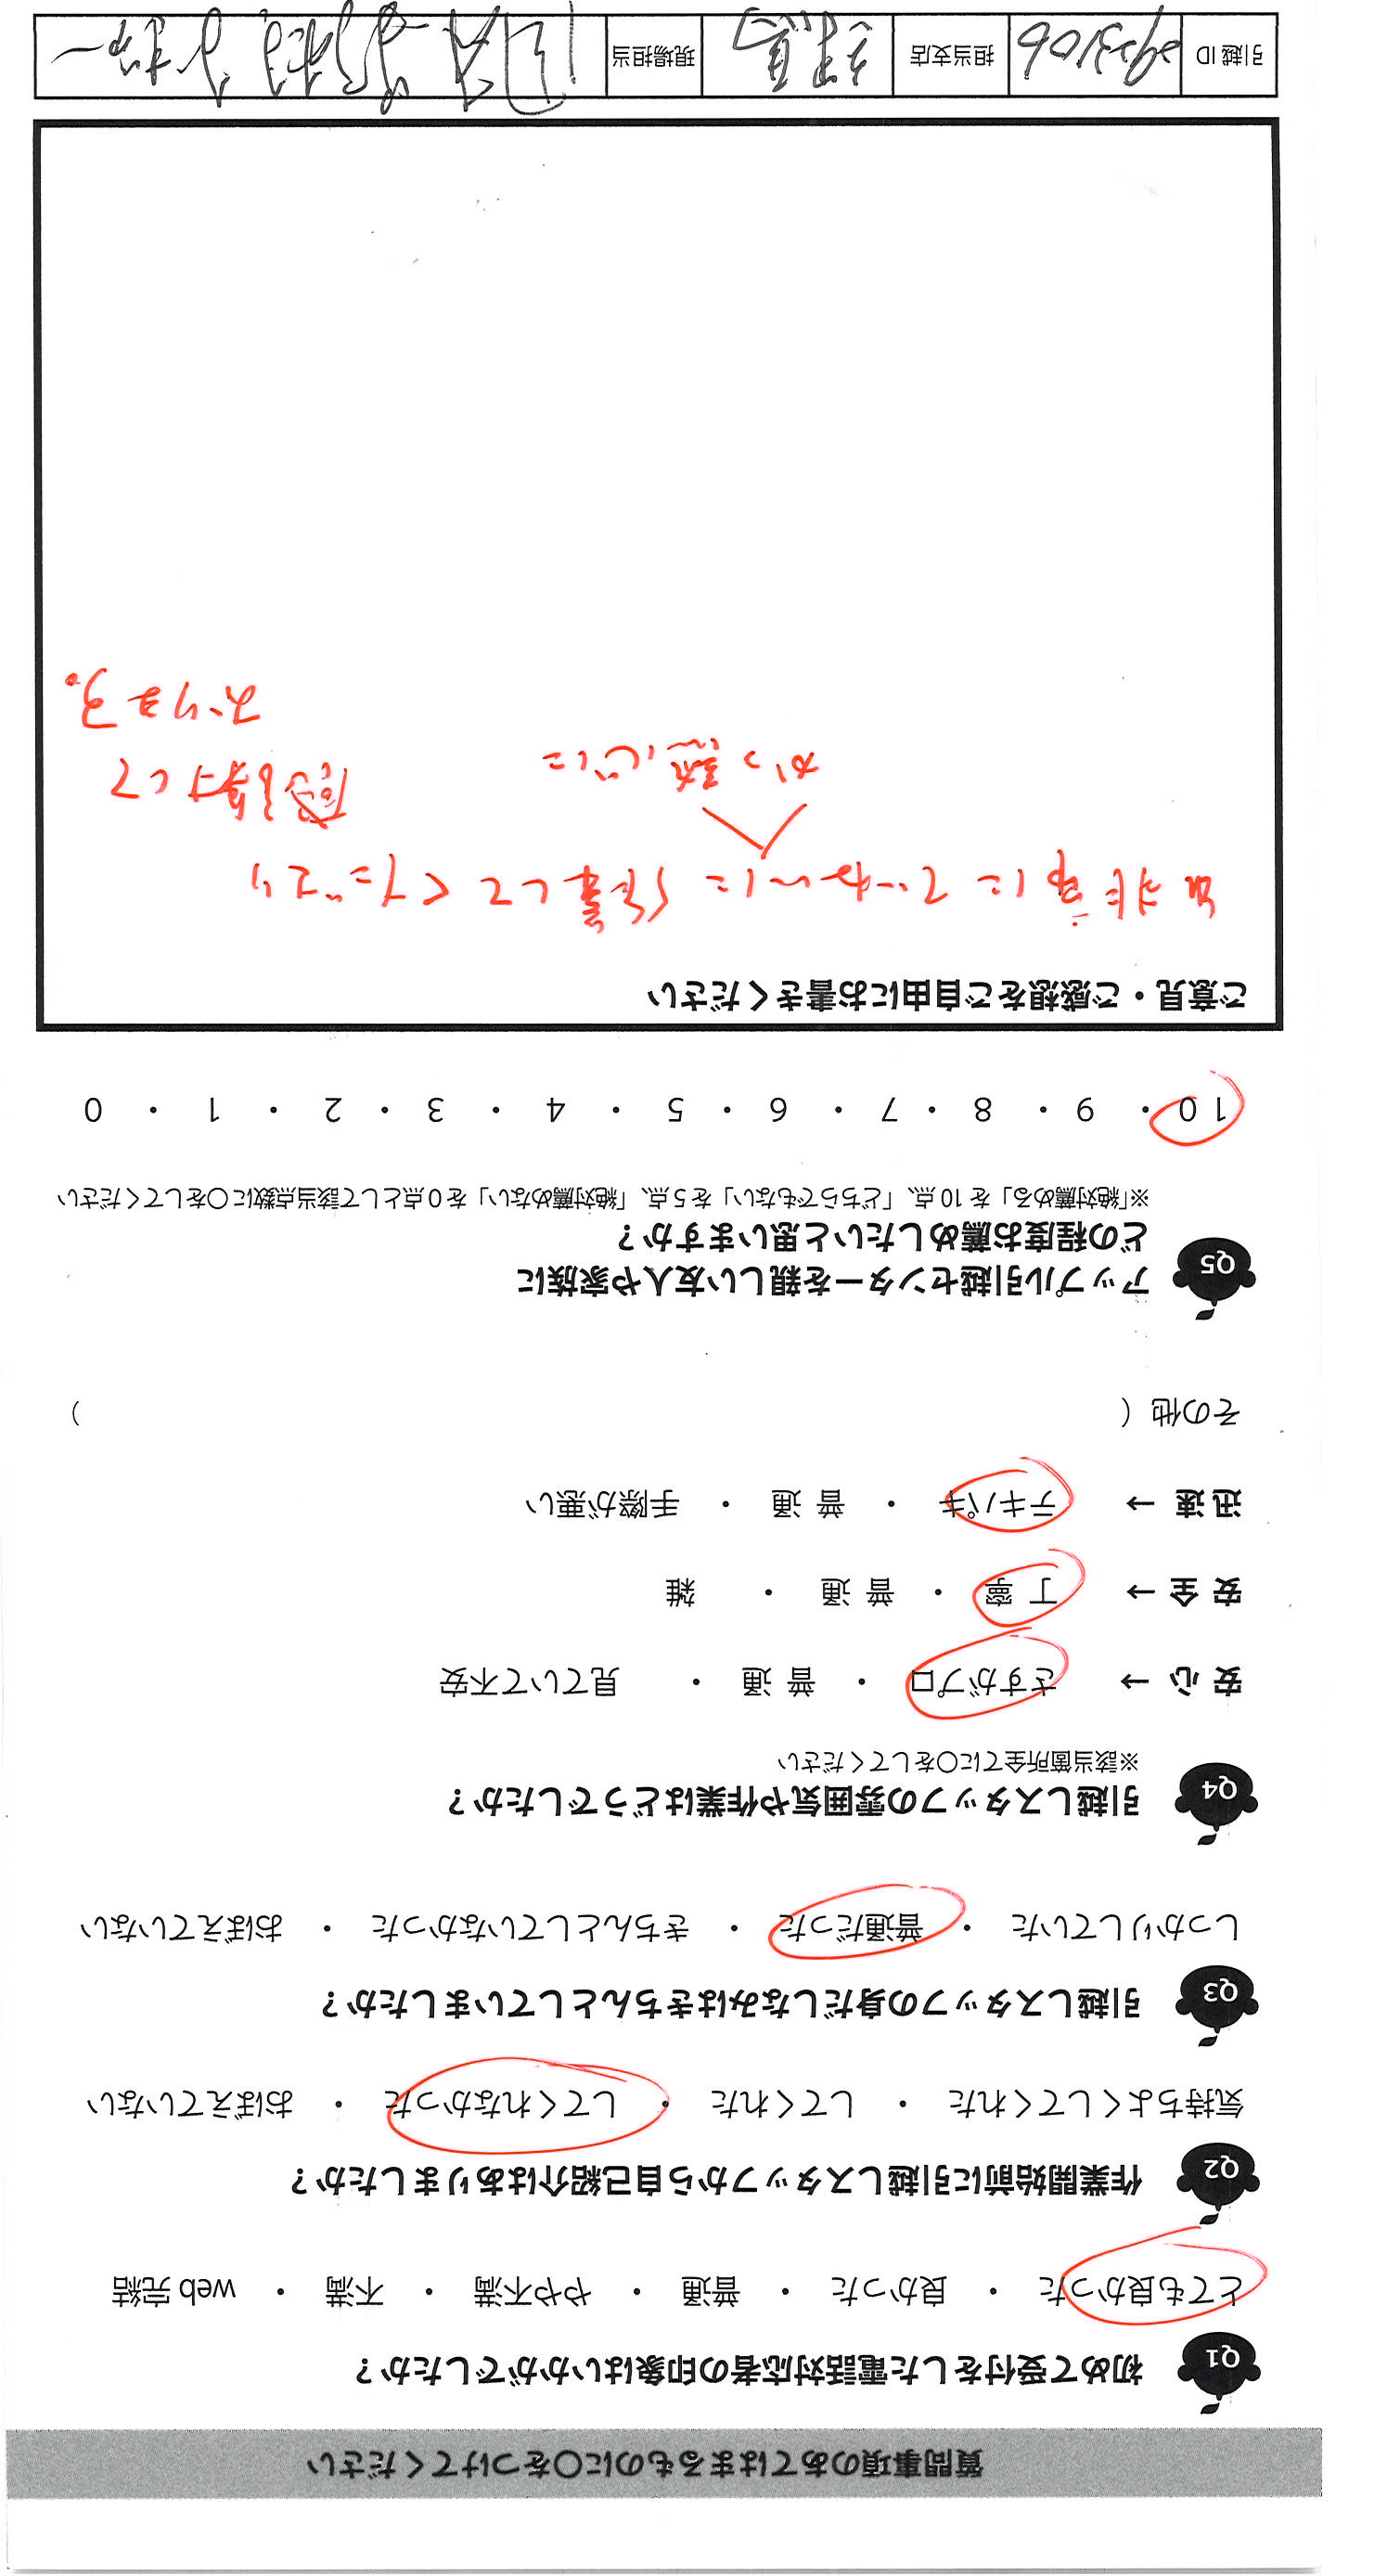 質問事項のあてはまるものに〇をつけてください
Q1 初めて受付をした電話対応者の印象はいかがでしたか?
とても良かった ・ 良かった ・ 普通 ・ やや不満 ・ 不満 ・ web完結
Q2 作業開始前に引越しスタッフから自己紹介はありましたか?
気持ちよくしてくれた ・ してくれた ・ してくれなかった ・ おぼえていない
Q3 引越しスタッフの身だしなみはきちんとしていましたか?
しっかりしていた ・ 普通だった ・ きちんとしていなかった ・ おぼえていない
Q4 引越しスタッフの雰囲気や作業はどうでしたか?
※該当箇所全てに〇をしてください
安心 → さすがプロ ・ 普通 ・ 見ていて不安
安全 → 丁寧 ・ 普通 ・ 雑
迅速 → テキパキ ・ 普通 ・ 手際が悪い
その他 ( )
Q5 アップル引越センターを親しい友人や家族に
どの程度お薦めしたいと思いますか?
※「絶対薦める」を10点、「どちらでもない」を5点、「絶対薦めない」を0点として該当点数に〇をしてください
10 ・ 9 ・ 8 ・ 7 ・ 6 ・ 5 ・ 4 ・ 3 ・ 2 ・ 1 ・ 0
ご意見・ご感想をご自由にお書きください
非常にていねいに作業してくださり
かつ 熱心に
感謝して
おります。
引越ID 担当支店 練馬 現場担当